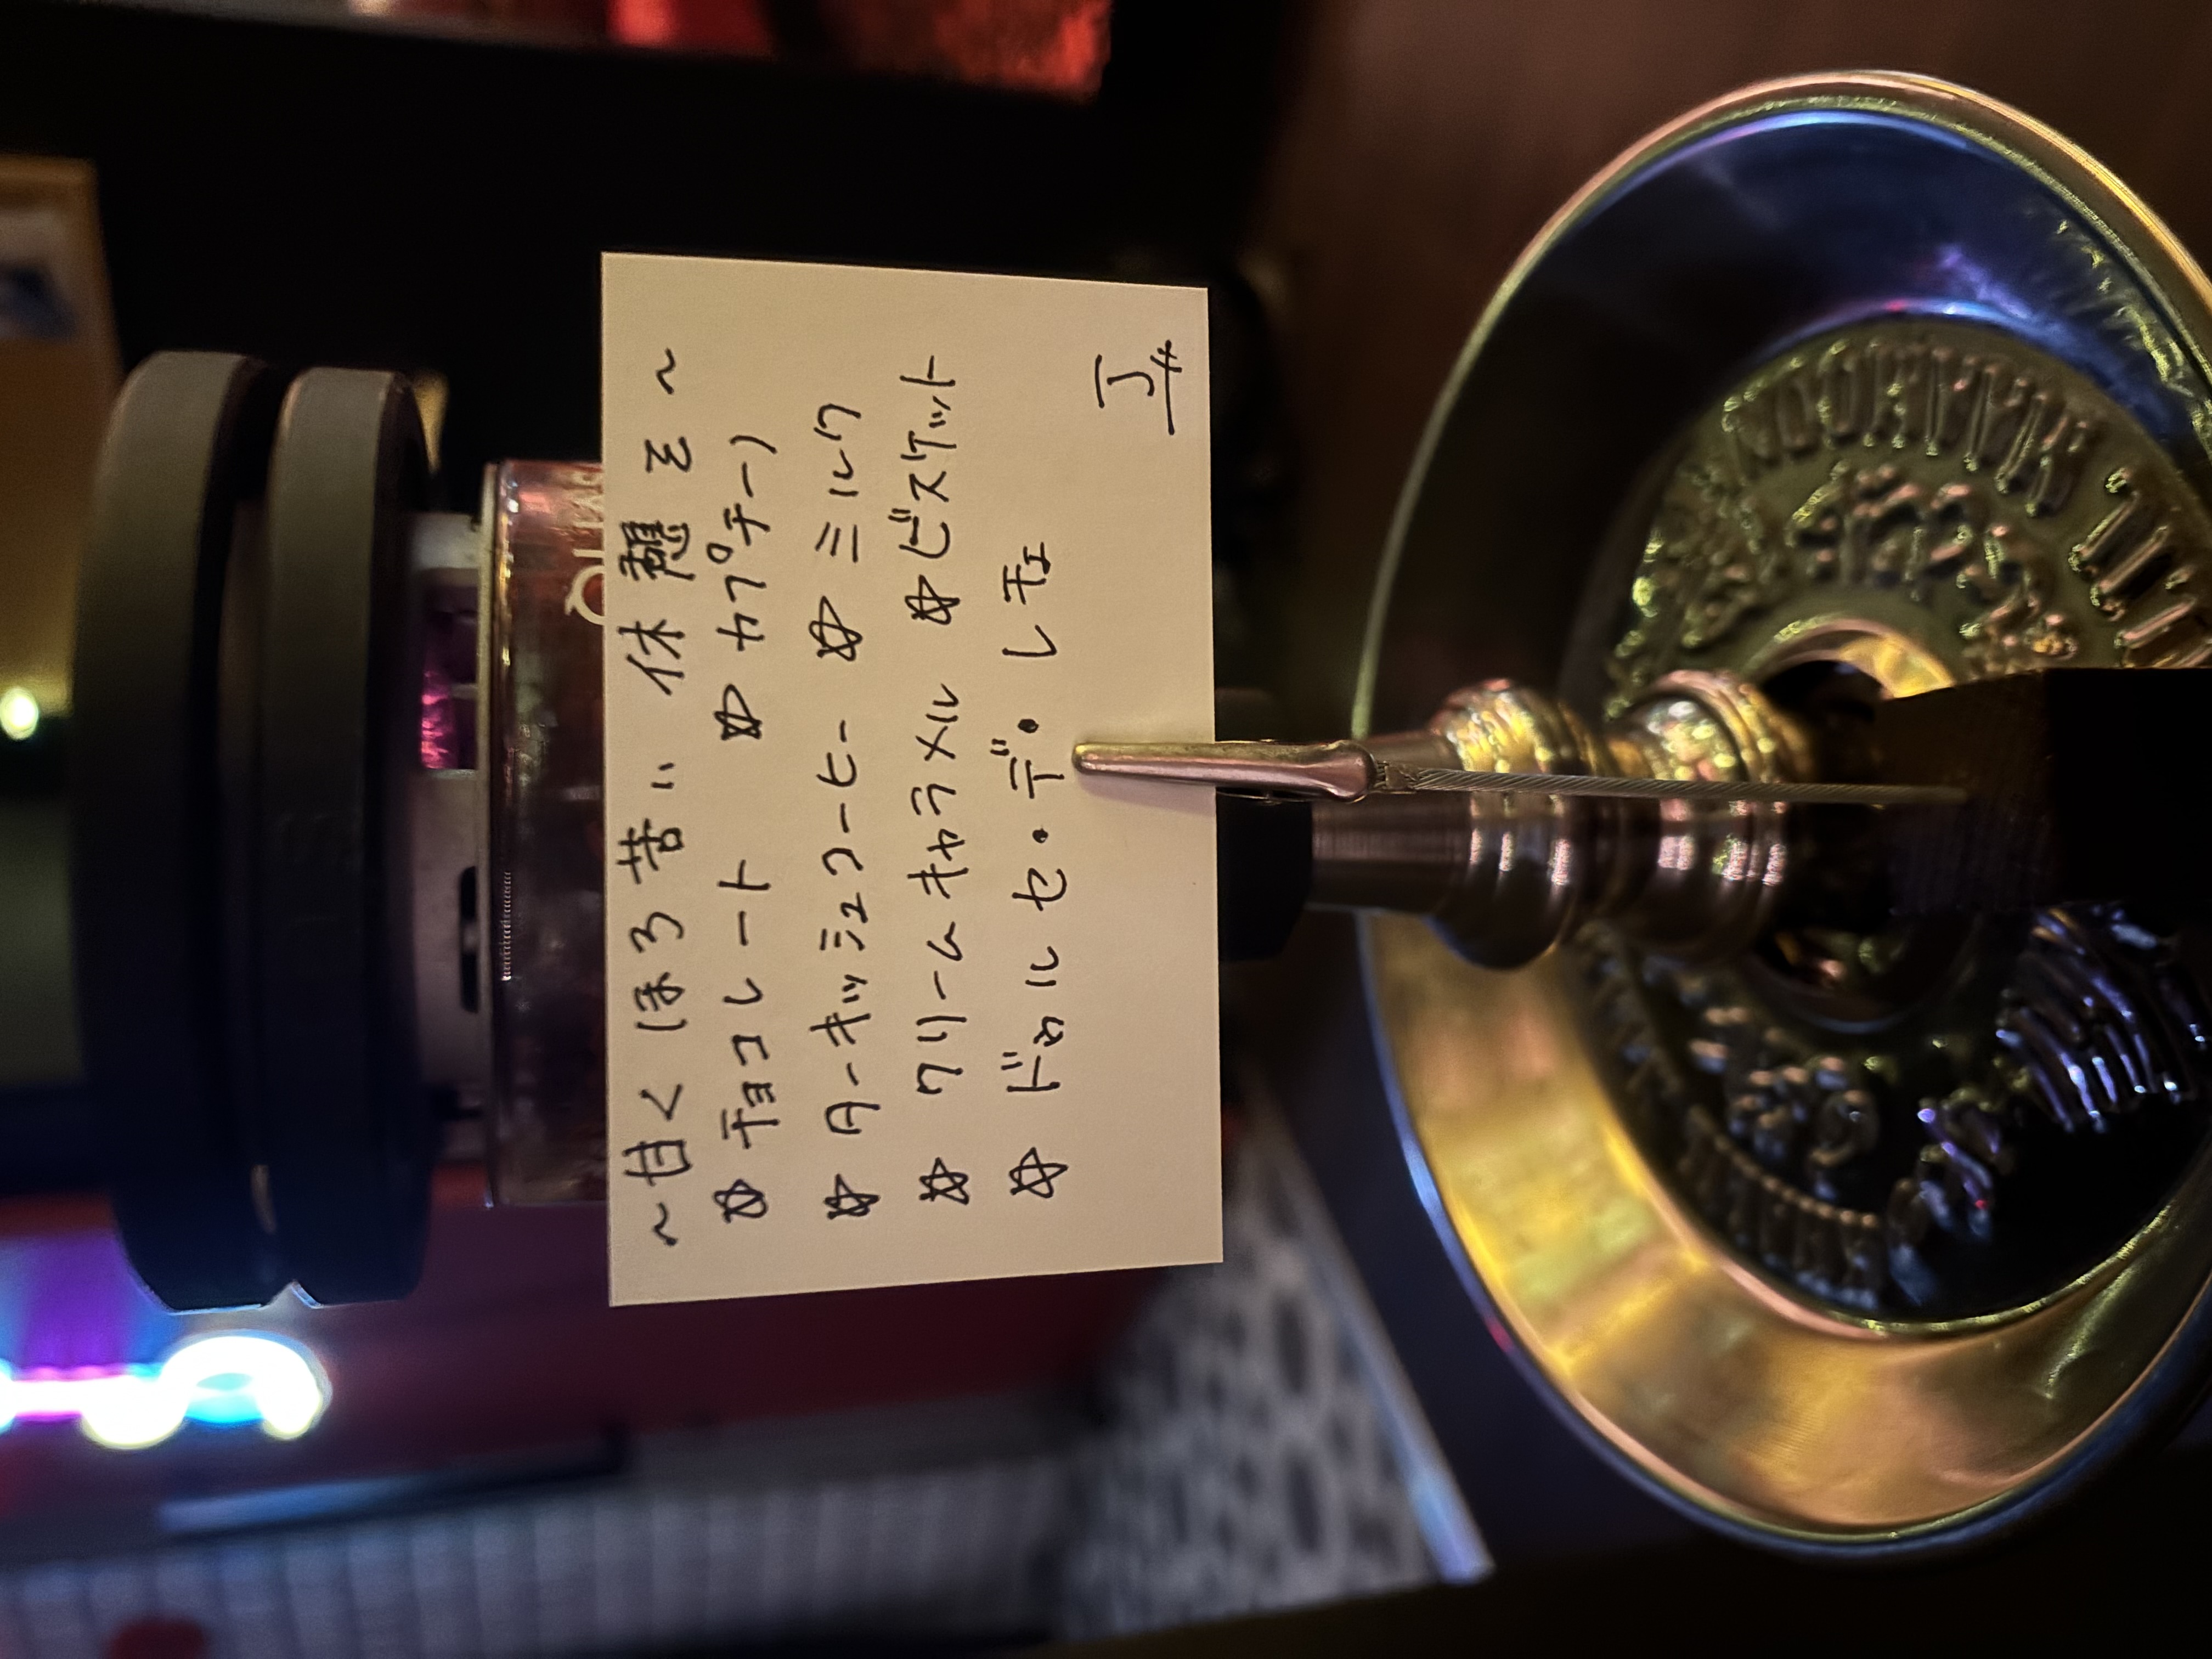 ~甘くほろ苦い 休憩を~
☆チョコレート ☆カプチーノ
☆ターキッシュコーヒー ☆ミルク
☆クリームキャラメル ☆ビスケット
☆ドゥルセ・デ・レチェ